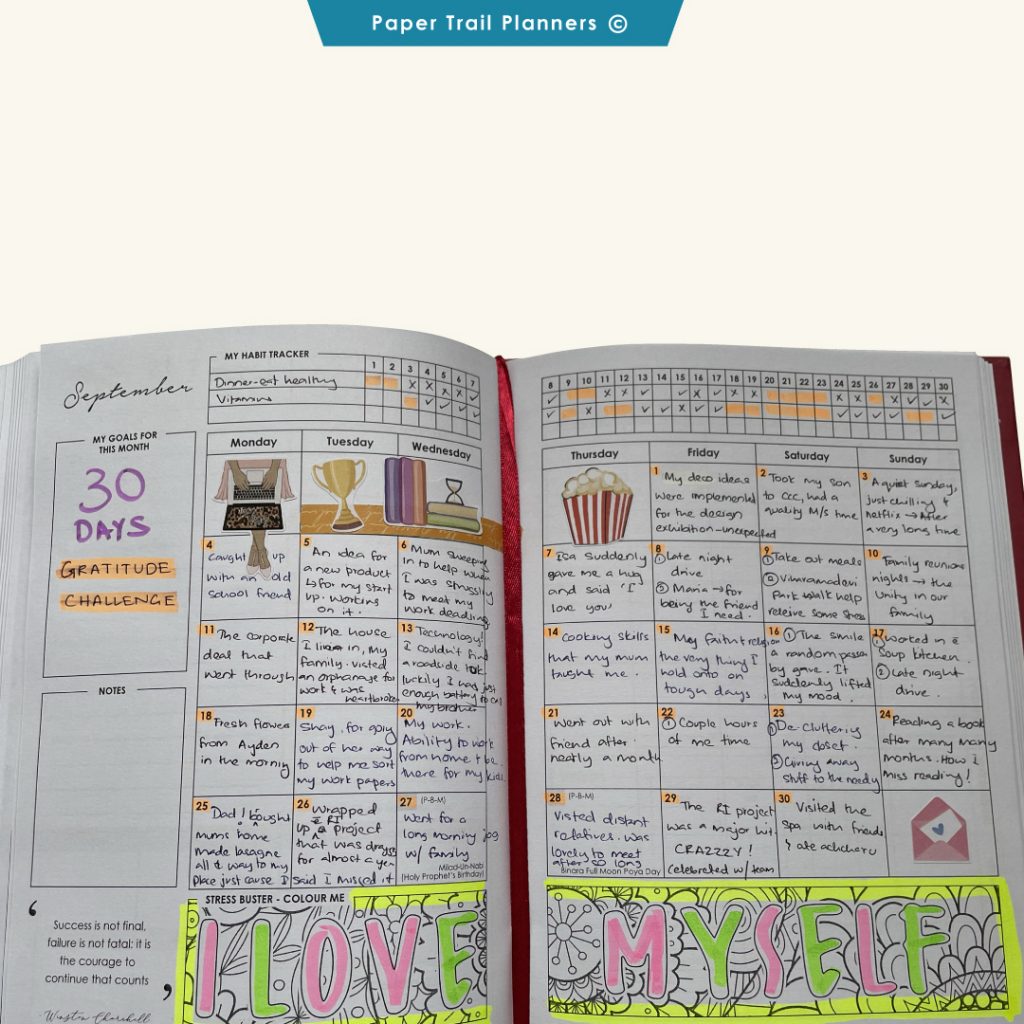 Paper Trail Planners ©
September
MY HABIT TRACKER
1 2 3 4 5 6 7
Dinner-eat healthy
X X X X ✓
Vitamins
8 9 10 11 12 13 14 15 16 17 18 19 20 21 22 23 24 25 26 27 28 29 30
MY GOALS FOR
THIS MONTH
30
DAYS
GRATITUDE
CHALLENGE
NOTES
Monday Tuesday Wednesday
Thursday Friday Saturday Sunday
1 My deco ideas
were implemented
for the design
exhibition-unexpected
2 Took my son
to CCC, had a
quality M/S time
3 A quiet Sunday,
just chilling &
Netflix → After
a very long time
4 Caught up
with an old
school friend
5 An idea for
a new product
↳ for my start
up. Working
on it.
6 Mum sweeping
in to help when
I was struggling
to meet my
work deadline
7 Isa suddenly
gave me a hug
and said 'I
love you'
8 ① Late night
drive
② Maria → for
being the friend
I need.
9 ① Take out meals
② Viharamadevi
Park walk help
releive some stress
10 Family reunions
nights → the
unity in our
family
11 The corporate
deal that
went through
12 The house
I live in, my
family. visted
an orphanage for
work & was
heartbroken
13 Technology!
I couldn't find
a roadside
luckily I had just
enough battery to call
my brother
14 Cooking skills
that my mum
taught me.
15 My faith & religion
the very thing I
hold onto on
tough days,
16 ① The smile
a random passer
by gave. It
suddenly lifted
my mood.
17 ① Worked in a
Soup kitchen.
② Late night
drive.
18 Fresh flowers
from Ayden
in the morning
19 Shay, for going
out of her way
to help me sort
my work papers
20 My work.
Ability to work
from home & be
there for my kids.
21 Went out with
friend after
nearly a month
22 ① Couple hours
of me time
23 ① De-cluttering
my closet.
② Giving away
stuff to the needy
24 Reading a book
after many many
months. How I
miss reading!
25 Dad bought
mums home
made lasagne
all the way to my
place just cause I
26 Wrapped
up a RI project
that was
for almost a year
said I missed it
27 (P-B-M)
Went for a
long morning jog
w/ family
Milad-Un-Nabi
(Holy Prophet's Birthday)
28 (P-B-M)
Visted distant
relatives. Was
lovely to meet
after so long
Binara Full Moon Poya Day
29 The RI project
was a major hit.
CRAZZZY!
celebrated w/ team
30 Visited the
spa with friends
& ate
STRESS BUSTER - COLOUR ME
I LOVE MYSELF
‘
Success is not final,
failure is not fatal: it is
the courage to
continue that counts
’
Winston Churchill